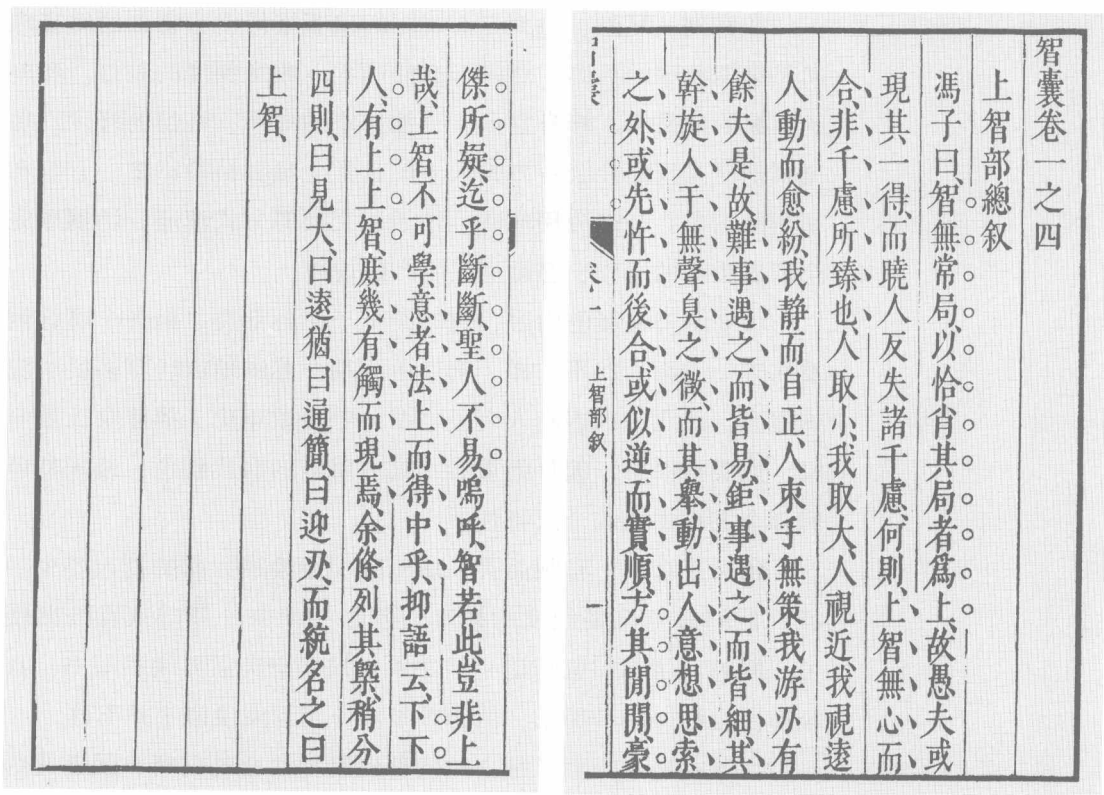 智囊卷一之四
上智部總叙
馮子曰、智無常局、以恰肖其局者爲上、故愚夫或
現其一得、而曉人反失諸千慮、何則、上智無心而
合、非千慮所臻也、人取小、我取大、人視近、我視遠
人動而愈紛、我静而自正、人束手無策、我游刃有
餘夫是故、難事遇之而皆易、鉅事遇之而皆細、其
幹旋人于無聲臭之微、而其舉動出人意想思索
之外、或先忤而後合、或似逆而實順、方其閒閒、豪
卷一
上智部叙
一
傑所疑、迄乎斷斷、聖人不易、嗚呼、智若此、豈非上
哉、上智不可學、意者法上而得中乎、抑語云、下下
人、有上上智、庶幾有觸而現焉、余條列其槩、稍分
四則、曰見大、曰遠猶、曰通簡、曰迎刃、而統名之曰
上智、